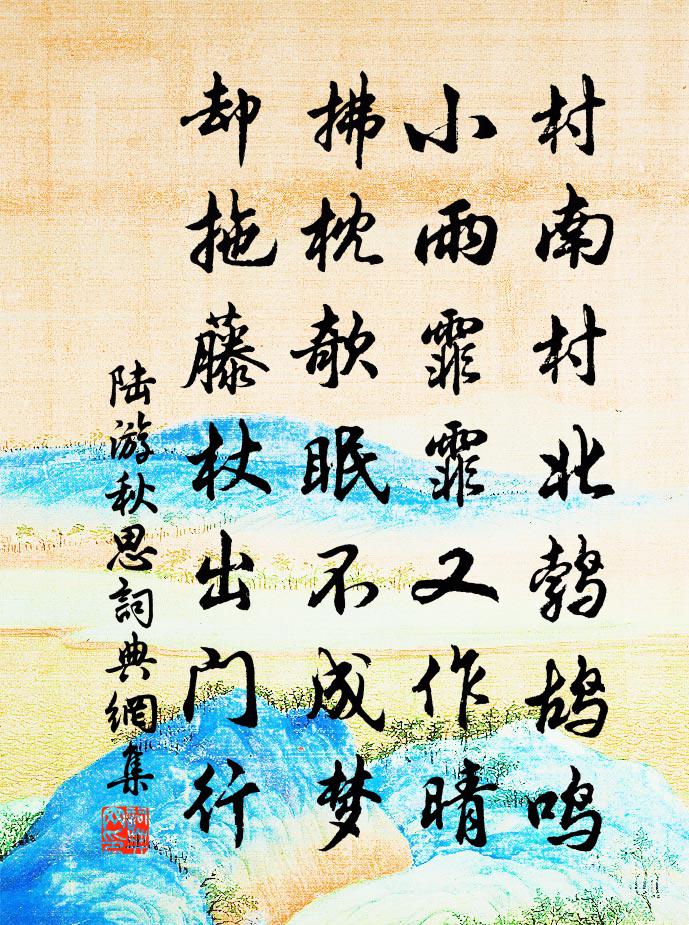 村南村北鹁鸪鸣
小雨霏霏又作晴
拂枕欹眠不成梦
却拖藤杖出门行
陆游秋思詞典網集